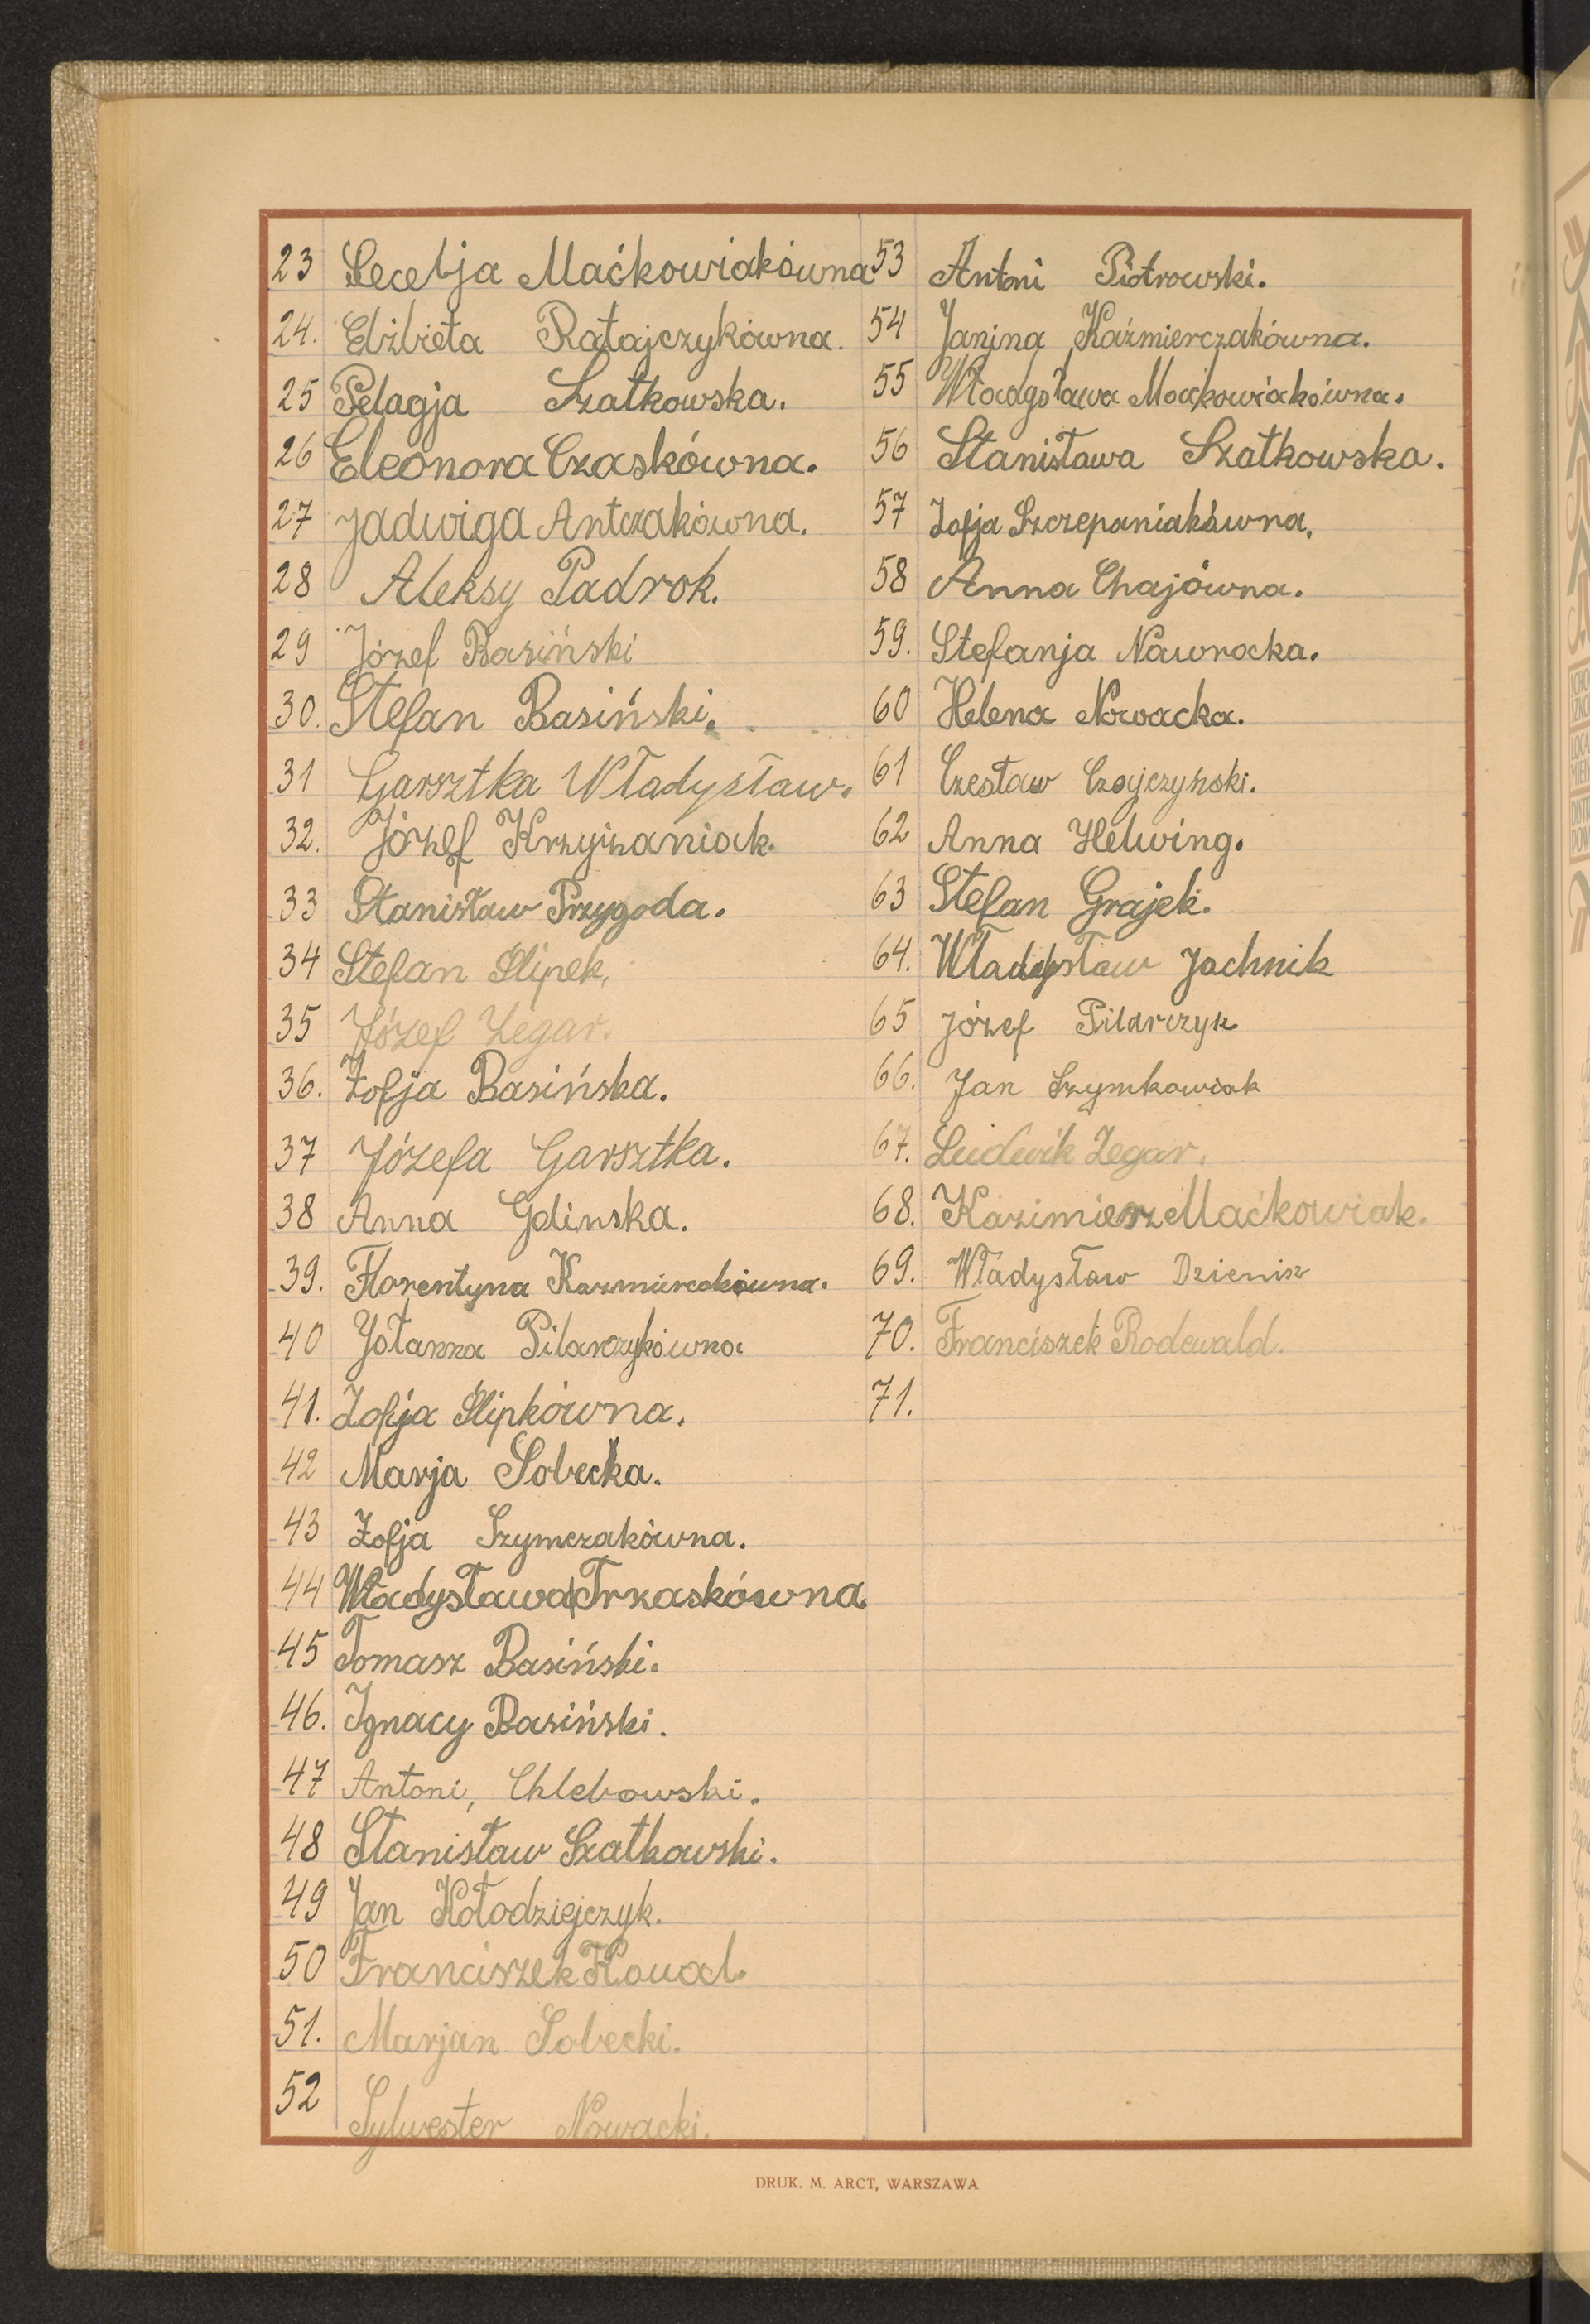 23 Secelja Maćkowiakówna
24. Elżbieta Ratajczykówna.
25 Pelagja Szatkowska.
26 Eleonora Czaskówna.
27 Jadwiga Antczakówna.
28 Aleksy Padrok.
29 Józef Basiński
30. Stefan Basiński.
31 Garsztka Władysław.
32. Józef Krzyżaniak.
33 Stanisław Przygoda.
34 Stefan Ślipek.
35 Józef Zegar.
36. Zofja Basińska.
37 Józefa Garsztka.
38 Anna Golinska.
39. Florentyna Kazmierczakówna.
40 Jołanna Pilarczykówna
41. Zofja Ślipkówna.
42 Marja Sobecka.
43 Zofja Szymczakówna.
44 Władysława Trzaskówna.
45 Tomasz Basiński.
46. Ignacy Basiński.
47 Antoni, Chlebowski.
48 Stanisław Szatkowski.
49 Jan Kołodziejczyk.
50 Franciszek Kowal.
51. Marjan Sobecki.
52 Sylwester Nowacki.
53 Antoni Piotrowski.
54 Janina Kaźmierczakówna.
55 Władysława Maćkowiakówna.
56 Stanisława Szatkowska.
57 Zofja Szczepaniakówna.
58 Anna Chajówna.
59. Stefanja Nawrocka.
60 Helena Nowacka.
61 Czesław Czajczyński.
62 Anna Helwing.
63 Stefan Grajek.
64. Władysław Jachnik
65 Józef Pilarczyk
66. Jan Szymkowiak
67. Ludwik Zegar.
68. Kazimierz Maćkowiak.
69. Władysław Dzienisz
70. Franciszek Rodewald.
71.
DRUK. M. ARCT, WARSZAWA